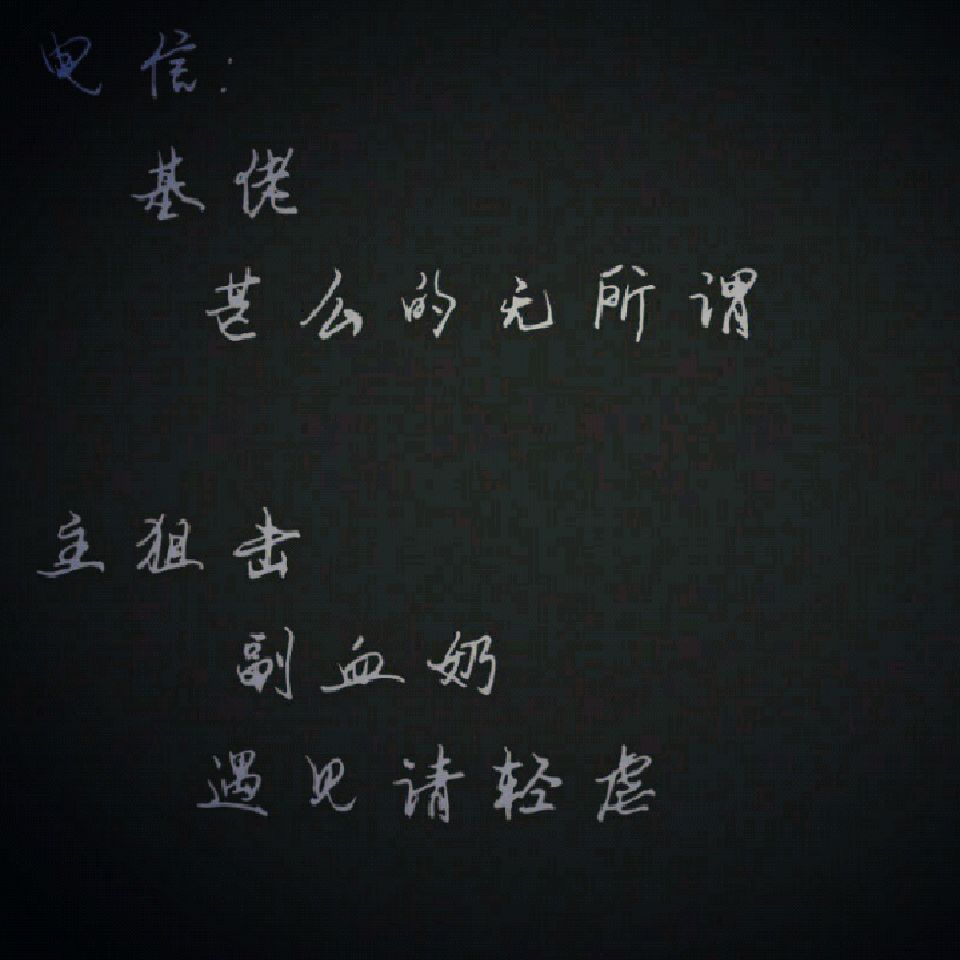 电信:
基佬
甚么的无所谓
主狙击
副血奶
遇见请轻虐